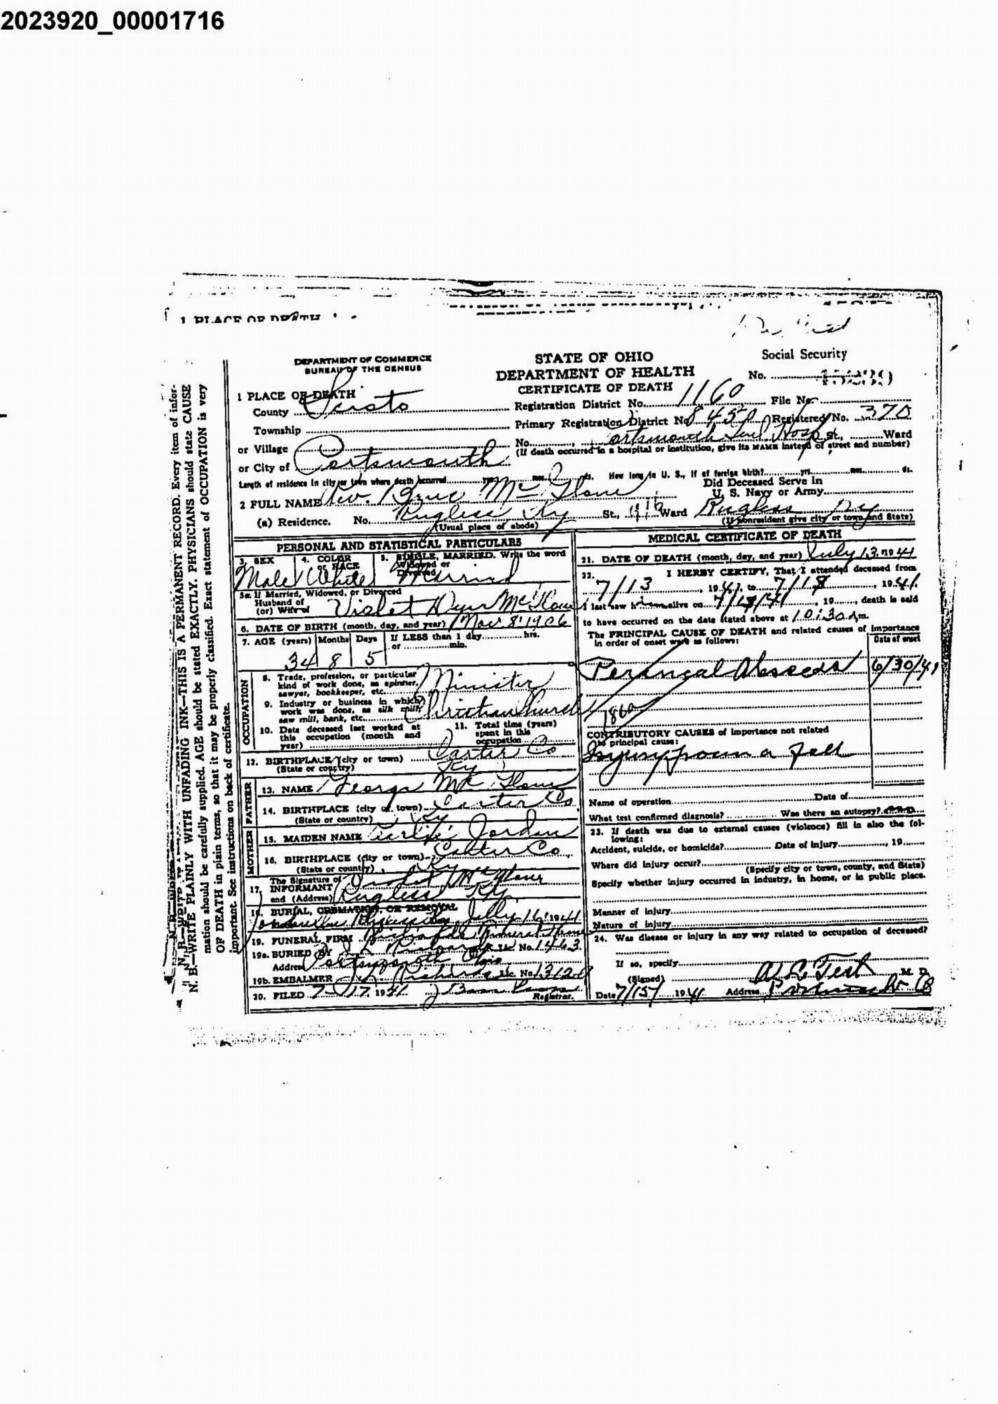 2023920_00001716
1 PLACE OF DEATH
Social Security
No.
DEPARTMENT OF COMMERCE
BUREAU OF THE CENSUS
STATE OF OHIO
DEPARTMENT OF HEALTH
CERTIFICATE OF DEATH
1 PLACE OF DEATH
County Scioto
Registration District No. 1160 File No.
Township
Primary Registration District No. 8450 Registered No. 370
or Village
No. Portsmouth Gen Hosp St., Ward
(If death occurred in a hospital or institution, give its NAME instead of street and number)
or City of Portsmouth
Length of residence in city or town where death occurred yrs. mos. ds. How long in U. S., if of foreign birth? yrs. mos. ds.
Did Deceased Serve in
U. S. Navy or Army
2 FULL NAME Rev. McGlone
(a) Residence. No. Rugless Ky St., Ward Rugless Ky
(Usual place of abode) (If nonresident give city or town and State)
PERSONAL AND STATISTICAL PARTICULARS
3. SEX Male
4. COLOR or RACE White
5. SINGLE, MARRIED, Write the word
Widowed or
Divorced Married
5a. If Married, Widowed, or Divorced
Husband of
(or) Wife of Violet McGlone
6. DATE OF BIRTH (month, day, and year) Nov 8 1906
7. AGE (years) Months Days If LESS than 1 day, hrs.
or min.
34 8 5
OCCUPATION
8. Trade, profession, or particular
kind of work done, as spinner,
sawyer, bookkeeper, etc. Minister
9. Industry or business in which
work was done, as silk mill,
saw mill, bank, etc. Christian Church
10. Date deceased last worked at
this occupation (month and
year)
11. Total time (years)
spent in this
occupation
12. BIRTHPLACE (city or town) Carter Co
(State or country) Ky
FATHER
13. NAME George McGlone
14. BIRTHPLACE (city or town) Carter Co
(State or country) Ky
MOTHER
15. MAIDEN NAME Jordan
16. BIRTHPLACE (city or town) Carter Co
(State or country) Ky
The Signature of
17. INFORMANT Violet McGlone
and (Address) Rugless Ky
18. BURIAL, CREMATION, OR REMOVAL
July 16 1941
19. FUNERAL FIRM Funeral Home
19a. BURIED BY Lic. No. 1463
Address Portsmouth Ohio
19b. EMBALMER Lic. No.
20. FILED 7/17, 1941
Registrar.
MEDICAL CERTIFICATE OF DEATH
21. DATE OF DEATH (month, day, and year) July 13 1941
22. I HERBY CERTIFY, That I attended deceased from
7/13, 1941, to 7/13, 1941.
I last saw him alive on 7/13/41, 19, death is said
to have occurred on the date stated above at 10:30 A m.
The PRINCIPAL CAUSE OF DEATH and related causes of importance
in order of onset were as follows:
Date of onset
Perineal Abscess 6/30/41
CONTRIBUTORY CAUSES of importance not related
to principal cause:
Injury from a fall
Name of operation Date of
What test confirmed diagnosis? Was there an autopsy?
23. If death was due to external causes (violence) fill in also the fol-
lowing:
Accident, suicide, or homicide? Date of injury, 19
Where did injury occur?
(Specify city or town, county, and State)
Specify whether injury occurred in industry, in home, or in public place.
Manner of injury
Nature of injury
24. Was disease or injury in any way related to occupation of deceased?
If so, specify
(Signed) M. D.
Date 7/15, 1941 Address Portsmouth
N. B.—WRITE PLAINLY WITH UNFADING INK—THIS IS A PERMANENT RECORD. Every item of infor-
mation should be carefully supplied. AGE should be stated EXACTLY. PHYSICIANS should state CAUSE
OF DEATH in plain terms, so that it may be properly classified. Exact statement of OCCUPATION is very
important. See instructions on back of certificate.